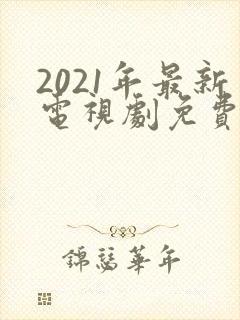 2021年最新
電視劇免費
錦瑟華年